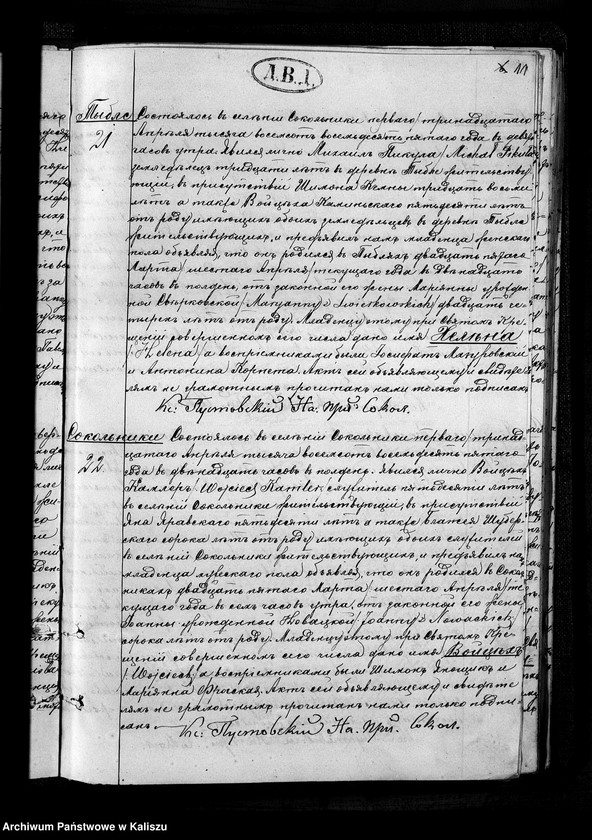 А.В.Д.
11
Тыбле
21
Состоялось въ селеніи Сокольники перваго /тринадцатаго
Апрѣля тысяча восемсотъ восемьдесятъ пятаго года въ девять
часовъ утра. Явился лично Михаилъ Пикула /Michał Pikula/
земледѣлецъ тридцати лѣтъ въ деревнѣ Тыбле жительству-
ющій, въ присутствіи Шимона тридцать восемь
лѣтъ а также Войцѣха пятьдесятъ лѣтъ
отъ роду имѣющихъ обоихъ земледѣльцевъ въ деревнѣ Тыбле
жительствующихъ, и предъявилъ намъ младенца женскаго
пола объявляя, что онъ родился въ Тыбляхъ двадцать пятаго
Марта /шестаго Апрѣля/ текущаго года въ двѣнадцать
часовъ въ полдень, отъ законной его жены Маріанны урожден-
ной Свѣрковской /Maryanny z Świerkowskich/ двадцать че-
тырехъ лѣтъ отъ роду. Младенцу этому при Святомъ Кре-
щеніи совершенномъ сего числа дано имя Хелена
/Helena/ а воспріемниками были
и Антонина Актъ сей объявляющему и свидѣте-
лямъ не грамотнымъ прочитанъ нами только подписанъ
Кс: Пустовскій На. Прих. Сокол.
Сокольники
22
Состоялось въ селеніи Сокольники перваго /тринад-
цатаго Апрѣля тысяча восемсотъ восемьдесятъ пятаго
года въ двѣнадцать часовъ въ полдень. Явился лично Войцѣхъ
Камлеръ /Wojciech Kamler/ служитель пятьдесяти лѣтъ
въ селеніи Сокольники жительствующій, въ присутствіи
Яна пятьдесяти лѣтъ а также Блажея
сорока лѣтъ отъ роду имѣющихъ обоихъ служителей
въ селеніи Сокольники жительствующихъ, и предъявилъ намъ
младенца мужескаго пола объявляя, что онъ родился въ Соколь-
никахъ двадцать пятаго Марта /шестаго Апрѣля/ те-
кущаго года въ семь часовъ утра, отъ законной его жены
Іоанны урожденной Новацкой /Joanny z Nowackich/
сорока лѣтъ отъ роду. Младенцу этому при Святомъ Кре-
щеніи совершенномъ сего числа дано имя Войцѣхъ
/Wojciech/ а воспріемниками были Шимонъ и
Маріанна Актъ сей объявляющему и свидѣте-
лямъ не грамотнымъ прочитанъ нами только подпи-
санъ.
Кс: Пустовскій На. Прих. Сокол.
Archiwum Państwowe w Kaliszu